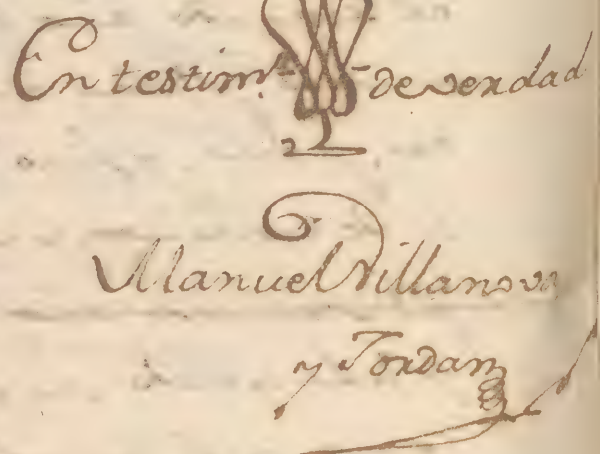 En testim.º de verdad
Manuel Villanova
y Jordan